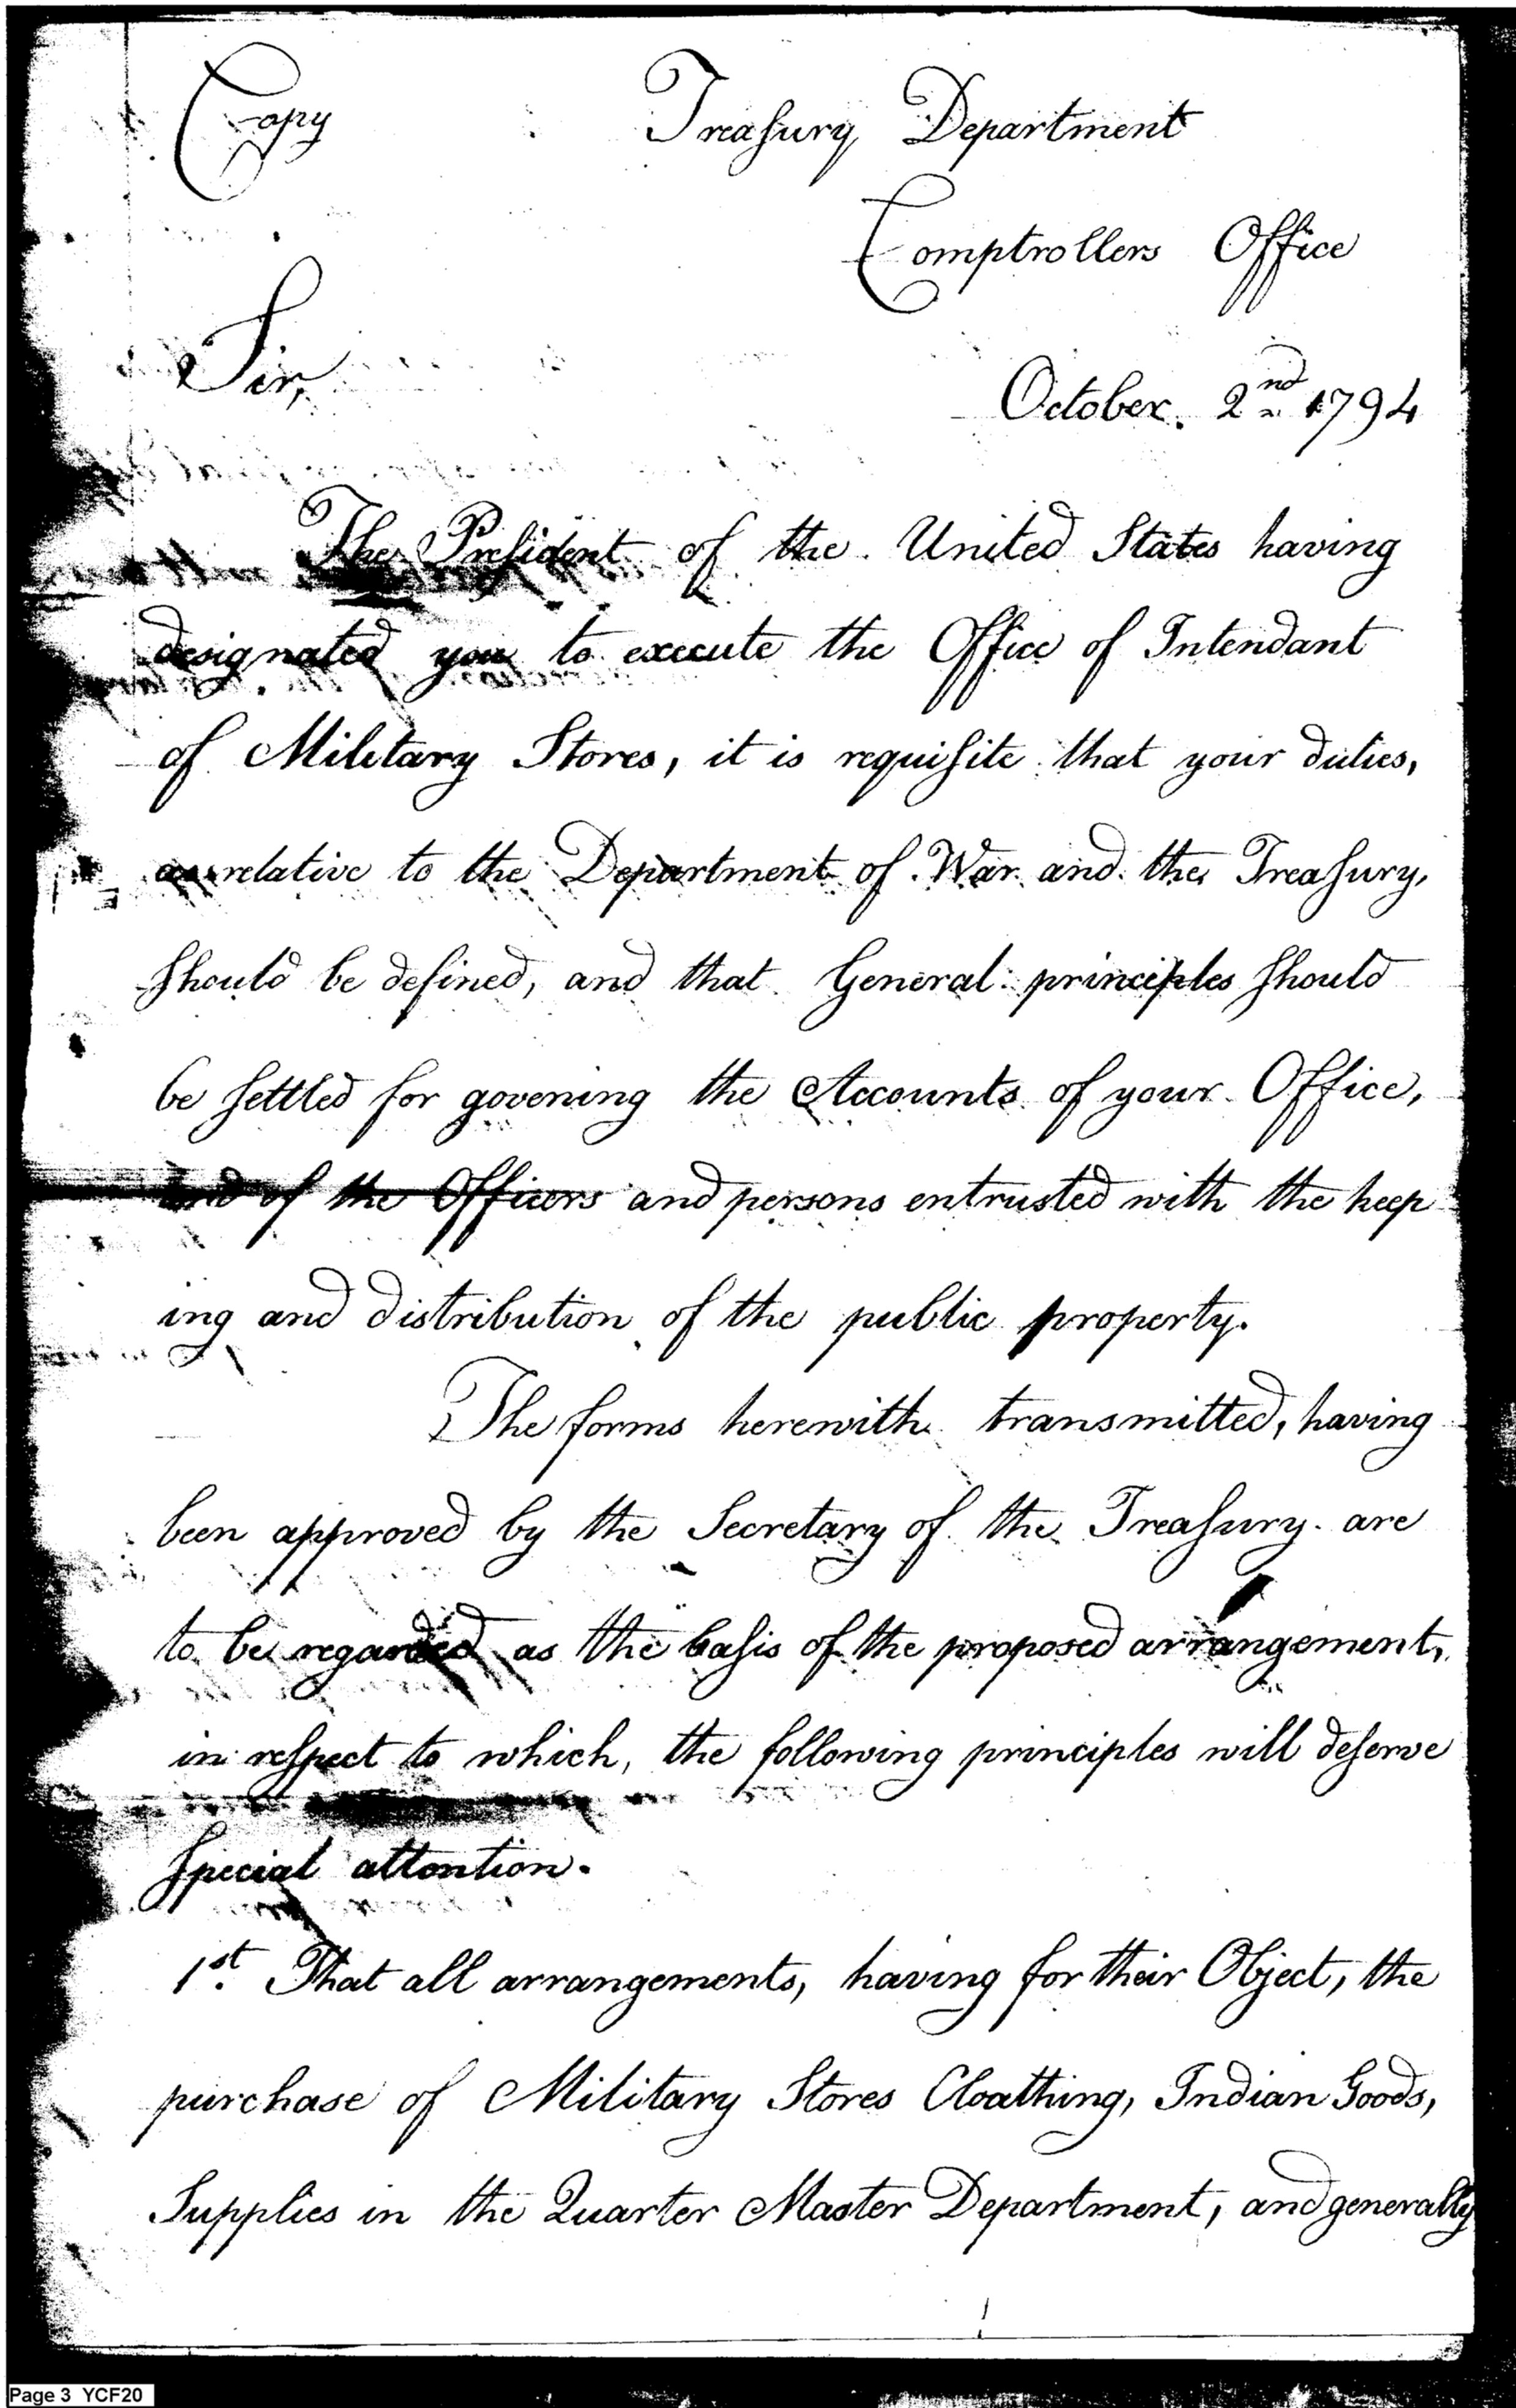 Copy Treasury Department
Comptrollers Office
Sir,
October. 2nd 1794
The President of the United States having
designated you to execute the Office of Intendant
of Military Stores, it is requisite that your duties,
as relative to the Department of War and the Treasury,
should be defined, and that General principles should
be settled for govening the Accounts of your Office,
and of the Officers and persons entrusted with the keep
ing and distribution of the public property.
The forms herewith transmitted, having
been approved by the Secretary of the Treasury are
to be regarded as the basis of the proposed arrangement,
in respect to which, the following principles will deserve
special attention.
1st. That all arrangements, having for their Object, the
purchase of Military Stores Cloathing, Indian Goods,
Supplies in the Quarter Master Department, and generally
Page 3 YCF20